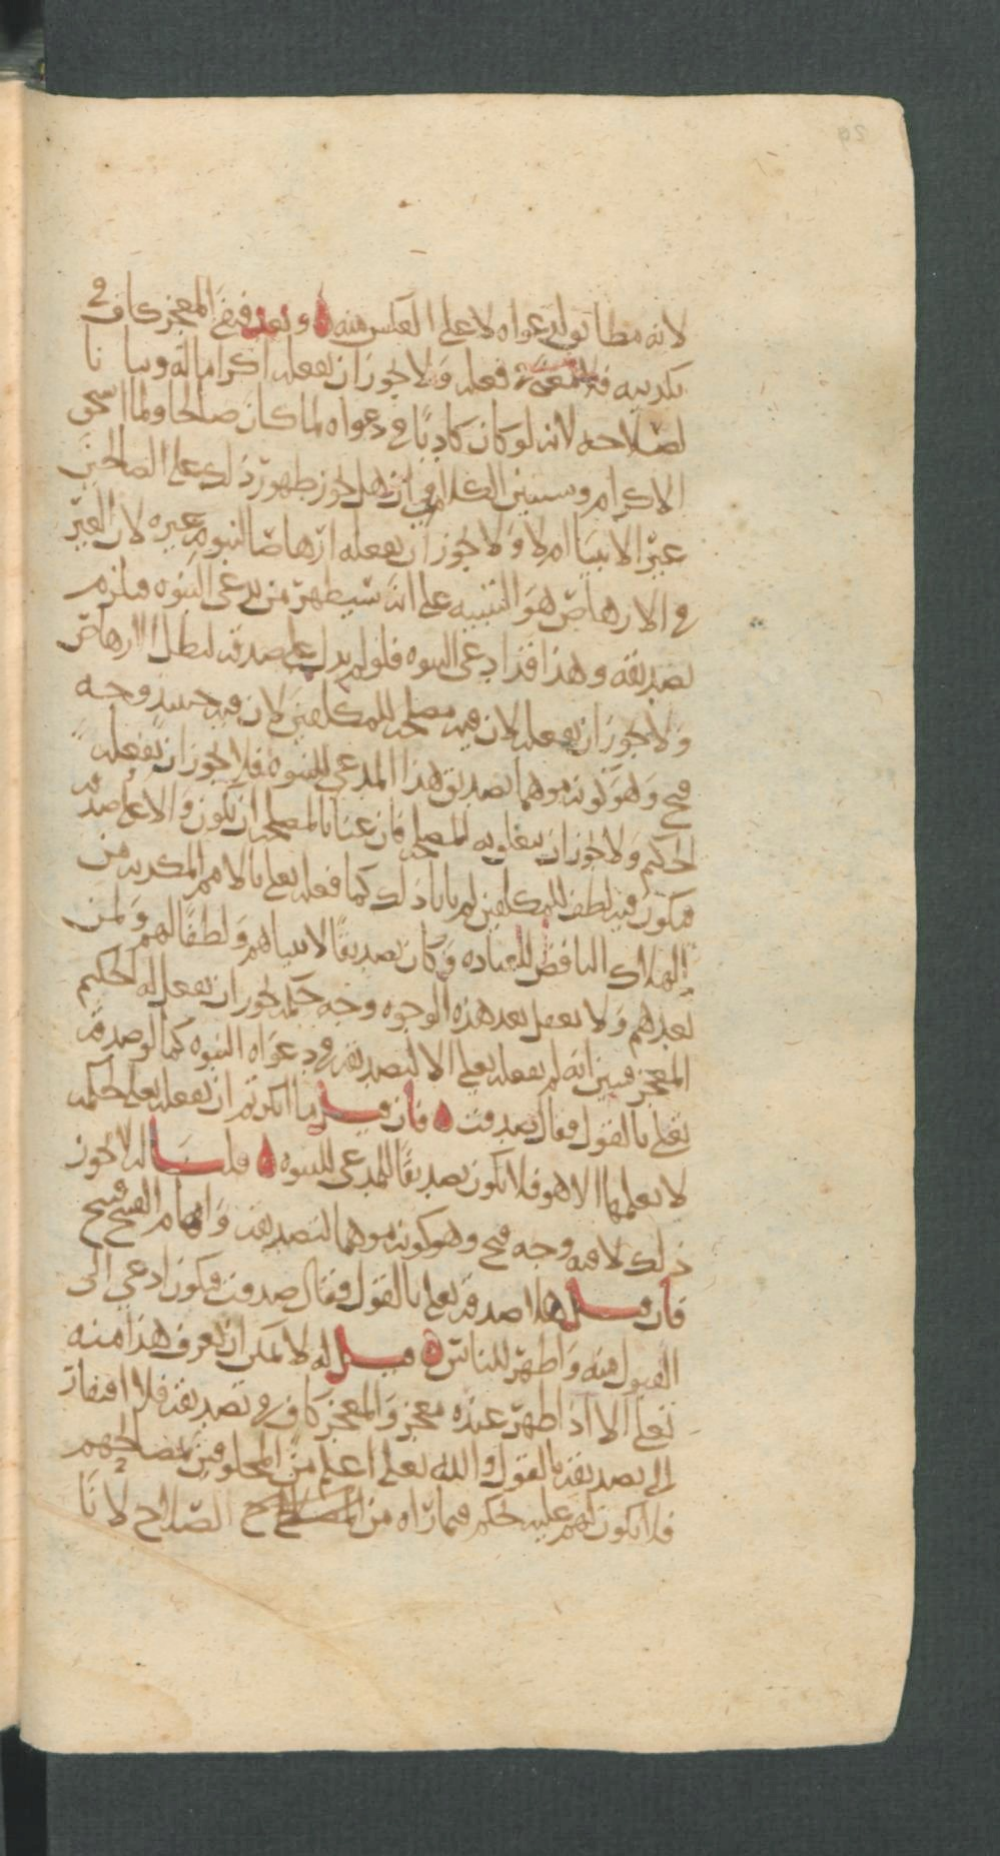 لانه مطابق لدعواه لا على العكس منه ۞ وبعد فنقض المعجز كاف في
تكذيبه فعله ولا يجوز ان يفعله اكراما له وبيا نا
لصلاحه لانه لو كان كاذبا في دعواه لما كان صالحا ولما استحق
الاكرام وسنبين الكلام في انه هل يجوز ظهور ذلك على الصالحين
غير الانبيا ام لا ولا يجوز ان يفعله ارهاصا لنبوة غيره لان الغرض
في الارهاص هو التنبيه على انه سيظهر من يدعي النبوه فيلزم
تصديقه وهذا قد ادعى النبوه فلو لم يدل على صدقه لبطل الارهاص
ولا يجوز ان يفعله لان فيه مصلحه للمكلفين لان فيه حينئذ وجه
قبح وهو كونه موهما تصديق هذا المدعي للنبوه فلا يجوز ان يفعله
الحكيم ولا يجوز ان يتعلق به المصلحه فان عنا بالمصلحه ان يكون دلالة على صدقه
فيكون فيه لطف للمكلفين لم نابا ذلك كما فعله تعالى بالامم المكذبه من
الهلاك الناقض للعاده وكان تصديقا لانبياهم ولطفا لهم ولمن
بعدهم ولا يعقل بعد هذه الوجوه وجه حكمه يجوز ان يفعل له الحكيم
المعجز فتبين انه لم يفعله تعالى الا لتصديقه في دعواه النبوه كما لو صدقه
تعالى بالقول فقال صدقت ۞ فان قيل ما انكرتم ان يفعله تعالى لحكمه
لا يعلمها الا هو فلا يكون تصديقا للمدعي للنبوه ۞ قلنا له لا يجوز
ذلك لان فيه وجه قبح وهو كونه موهما لتصديقه وايهام القبح قبيح
فان قيل هلا صدقه تعالى بالقول فقال صدقت فيكون ادعى الى
القبول منه واظهر للناس ۞ قيل له لا يمكن ان يعرف هذا منه
تعالى الا اذا ظهر عنده معجز والمعجز كاف في تصديقه فلا افتقار
الى تصديقه بالقول والله تعالى اعلم من المخلوقين بمصالحهم
فلا يكون لهم عليه حكم فيما راه من الصلاح لا نا